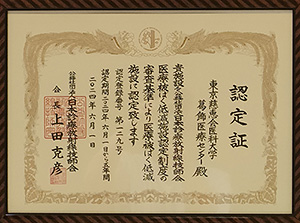 認定証
東京慈恵会医科大学
葛飾医療センター殿
貴施設は公益社団法人日本診療放射線技師会
医療被ばく低減施設認定制度の
審査基準により医療被ばく低減
施設に認定致します
認定登録番号 第一二九号
認定期間 二〇二四年 六月一日から五年間
二〇二四年 六月 一日
公益社団法人日本診療放射線技師会
会長 上田克彦